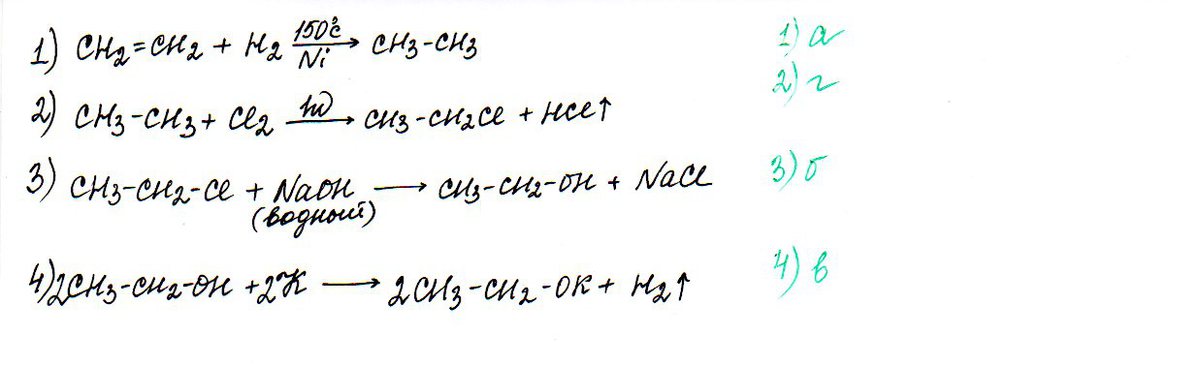 1) CH2=CH2 + H2 150°C/Ni → CH3-CH3 1) а
2) CH3-CH3 + Cl2 hν → CH3-CH2Cl + HCl↑ 2) г
3) CH3-CH2-Cl + NaOH → CH3-CH2-OH + NaCl 3) б
(водный)
4) 2CH3-CH2-OH + 2K → 2CH3-CH2-OK + H2↑ 4) в